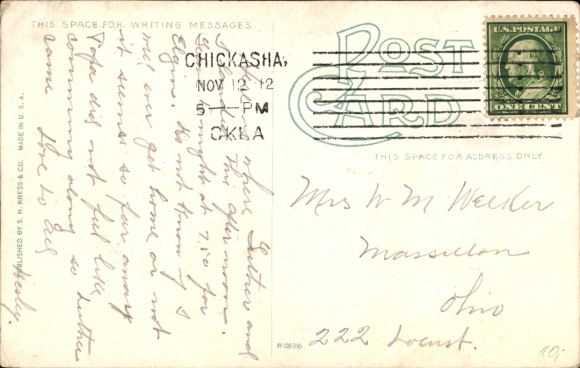 THIS SPACE FOR WRITING MESSAGES
POST
CARD
U.S. POSTAGE
ONE CENT
CHICKASHA,
NOV 12 12
5 — PM
OKLA
THIS SPACE FOR ADDRESS ONLY
where Luther and
I this afternoon.
at 7:50 for
Elgin. Do not know
will ever get home or not
it seems so far away
Papa did not feel like
comming along so Luther
came Love to all
Wesley.
Mrs W M
Massillon
Ohio
222 Locust.
PUBLISHED BY S. H. KRESS & CO. MADE IN U.S.A.
R-26916
10,-